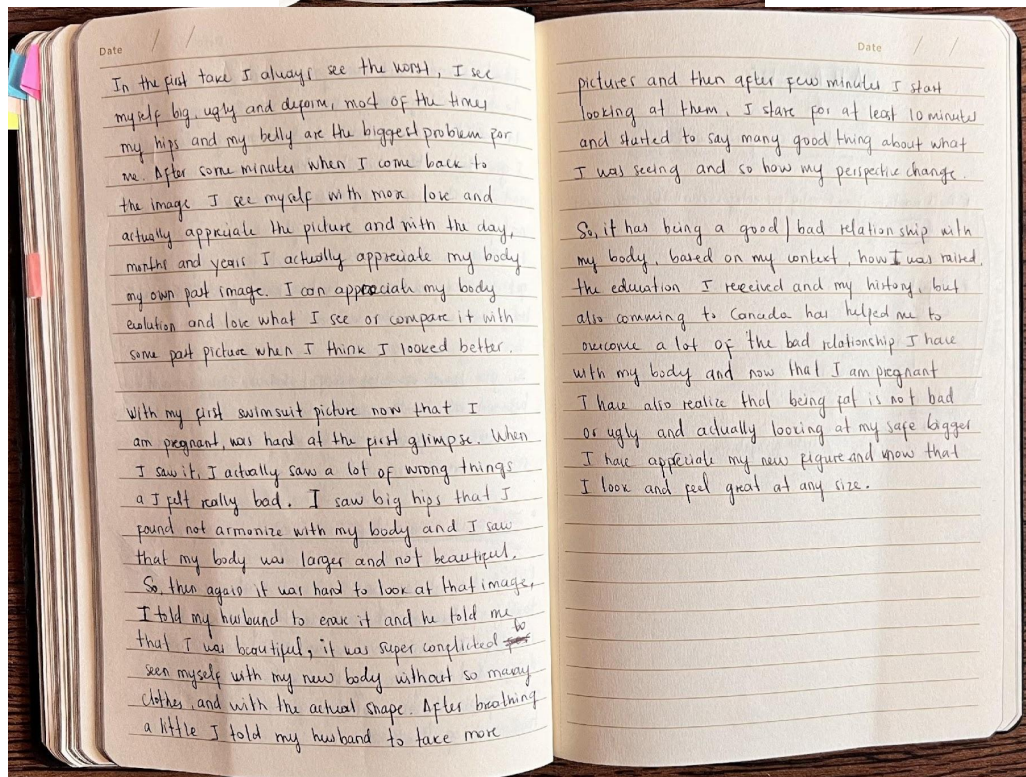 Date / /
In the first take I always see the worst, I see
myself big, ugly and deform, most of the times
my hips and my belly are the biggest problem for
me. After some minutes when I come back to
the image I see myself with more love and
actually appreciate the picture and with the day,
months and years I actually appreciate my body
my own past image. I can appreciate my body
evolution and love what I see or compare it with
some past picture when I think I looked better.
With my first swimsuit picture now that I
am pregnant, was hard at the first glimpse. When
I saw it, I actually saw a lot of wrong things
a I felt really bad. I saw big hips that I
found not armonize with my body and I saw
that my body was larger and not beautiful.
So, then again it was hard to look at that image,
I told my husband to erase it and he told me
that I was beautiful, it was super conflicted to
seen myself with my new body without so many
clothes, and with the actual shape. After breathing
a little I told my husband to take more
Date / /
pictures and then after few minutes I start
looking at them, I stare for at least 10 minutes
and started to say many good thing about what
I was seeing and so how my perspective change.
So, it has being a good / bad relationship with
my body, based on my context, how I was raised,
the education I received and my history, but
also comming to Canada has helped me to
overcome a lot of the bad relationship I have
with my body and now that I am pregnant
I have also realize that being fat is not bad
or ugly and actually looking at my safe bigger
I have appreciate my new figure and know that
I look and feel great at any size.